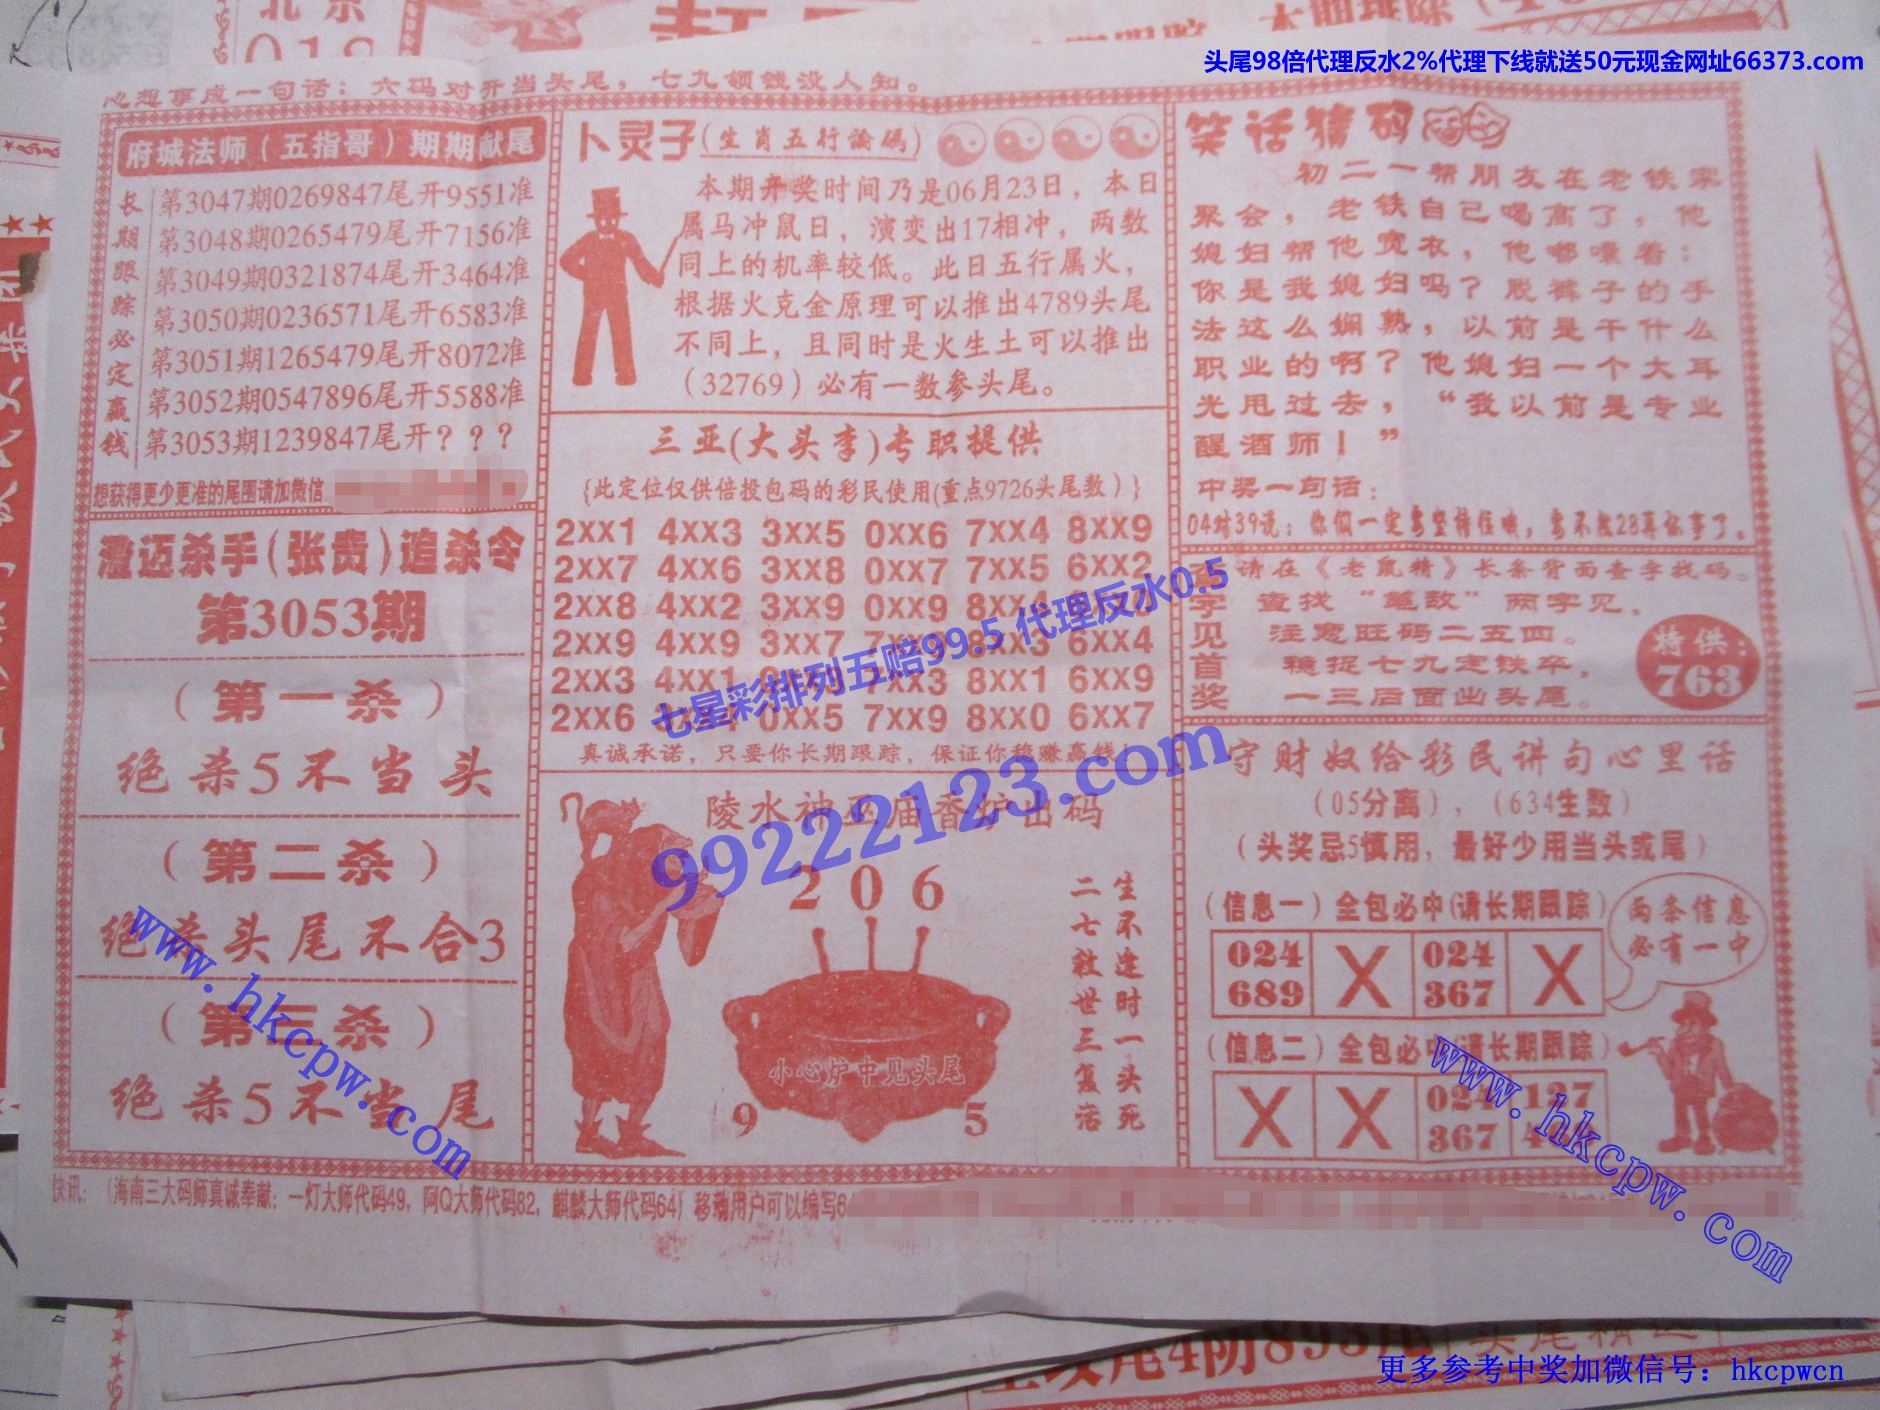 头尾98倍代理反水2%代理下线就送50元现金网址66373.com
北京
心想事成一句话：六码对开当头尾，七九领钱没人知。
府城法师（五指哥）期期献尾
长期跟踪必定赢钱
第3047期0269847尾开9551准
第3048期0265479尾开7156准
第3049期0321874尾开3464准
第3050期0236571尾开6583准
第3051期1265479尾开8072准
第3052期0547896尾开5588准
第3053期1239847尾开？？？
想获得更少更准的尾围请加微信
澄迈杀手（张贵）追杀令
第3053期
（第一杀）
绝杀5不当头
（第二杀）
绝杀头尾不合3
（第三杀）
绝杀5不当尾
卜灵子（生肖五行论码）
本期开奖时间乃是06月23日，本日
属马冲鼠日，演变出17相冲，两数
同上的机率较低。此日五行属火，
根据火克金原理可以推出4789头尾
不同上，且同时是火生土可以推出
（32769）必有一数参头尾。
三亚(大头李)专职提供
{此定位仅供倍投包码的彩民使用(重点9726头尾数）}
2xx1 4xx3 3xx5 0xx6 7xx4 8xx9
2xx7 4xx6 3xx8 0xx7 7xx5 6xx2
2xx8 4xx2 3xx9 0xx9 8xx4
2xx9 4xx9 3xx7 7xx 8xx3 6xx4
2xx3 4xx1 7xx3 8xx1 6xx9
2xx6 0xx5 7xx9 8xx0 6xx7
真诚承诺，只要你长期跟踪，保证你稳赚赢钱！
陵水神巫庙香炉出码
2 0 6
小心炉中见头尾
9 5
生不逢时一头死
二七救世三复活
笑话猜码
初二一帮朋友在老铁家
聚会，老铁自己喝高了，他
媳妇帮他宽衣，他嘟囔着：
你是我媳妇吗？脱裤子的手
法这么娴熟，以前是干什么
职业的啊？他媳妇一个大耳
光甩过去，“我以前是专业
醒酒师！”
中奖一句话：
字见首奖
请在《老鼠精》长条背面查字找码。
注意旺码二五四。
稳捉七九定铁卒，
一三后面出头尾。
特供：
763
守财奴给彩民讲句心里话
（05分离），（634生数）
（头奖忌5慎用，最好少用当头或尾）
（信息一）全包必中（请长期跟踪）
024 689 X 024 367 X
两条信息
必有一中
（信息二）全包必中（请长期跟踪）
X X 024 367 127 4
快讯：（海南三大码师真诚奉献：一灯大师代码49，阿Q大师代码82，麒麟大师代码64）移动用户可以编写6
七星彩排列五赔99.5 代理反水0.5
99222123.com
www.hkcpw.com
www.hkcpw.com
更多参考中奖加微信号：hkcpwcn